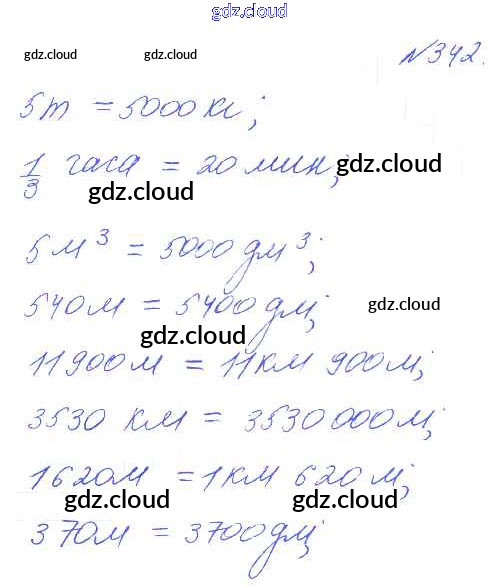 gdz.cloud
gdz.cloud gdz.cloud №342.
5т = 5000 кг;
1/3 часа = 20 мин;
gdz.cloud gdz.cloud
5 м³ = 5000 дм³;
540м = 5400 дм;
gdz.cloud
gdz.cloud
11900м = 11км 900м;
3530 км = 3530000м;
1620м = 1км 620м;
gdz.cloud gdz.cloud
370м = 3700дм;